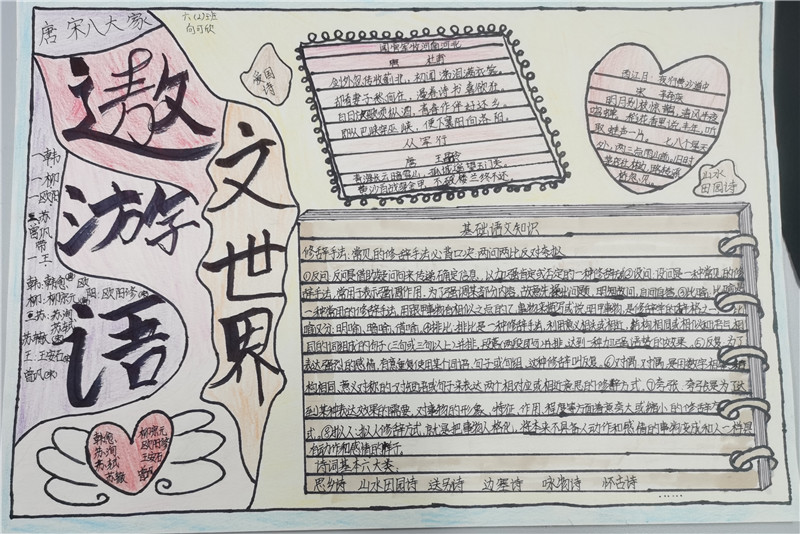 唐宋八大家
六(2)班
向可欣
遨游
语
文世界
一韩
一柳
一欧阳
三苏
曾巩
带
一王
韩:韩愈
欧阳:欧阳修
柳:柳宗元
三苏:苏洵
苏轼
苏辙
王:王安石
曾巩(宋)
韩愈
苏洵
苏轼
苏辙
柳宗元
欧阳修
王安石
曾巩
爱国诗
闻官军收河南河北
杜甫
剑外忽传收蓟北,初闻涕泪满衣裳。
却看妻子愁何在,漫卷诗书喜欲狂。
白日放歌须纵酒,青春作伴好还乡。
即从巴峡穿巫峡,便下襄阳向洛阳。
从军行
唐 王昌龄
青海长云暗雪山,孤城遥望玉门关。
黄沙百战穿金甲,不破楼兰终不还。
西江月·夜行黄沙道中
宋 辛弃疾
明月别枝惊鹊,清风半夜
鸣蝉。稻花香里说丰年,听
取蛙声一片。七八个星天
外,两三点雨山前。旧时
茅店社林边,路转溪
桥忽见。
山水
田园诗
基础语文知识
修辞手法:常见的修辞手法必背口决:两问两比反对夸拟
①反问:反问是借助疑问句来传递确定信息,以加强肯定或否定的一种修辞②设问:设问是一种常见的修
辞手法,常用于表示强调作用,为了强调某部分内容,故意先提出问题,明知故问,自问自答③比喻:比喻是
一种常用的修辞手法,用跟甲事物有相似之点的乙事物来描写或说明甲事物,是修辞学的辞格之一
暗喻,借喻④排比:排比是一种修辞手法,利用意义相关或相近,结构相同或相似和语气相
同的词组(三句或三句以上)并排,段落并排,达到一种加强语势的效果⑤反复:为了
表达强烈的感情,有意重复使用某个词语,句子或句组,这种修辞叫反复⑥对偶:对偶是用字数相等,结
构相同,意义对称的一对短语或句子来表达两个相对应或相近意思的修辞方式⑦夸张:夸张是为了达
到某种表达效果的需要,对事物的形象,特征,作用,程度等方面着意夸大或缩小的修辞方
式。⑧拟人:拟人修辞方式,就是把事物人格化,将本来不具备人动作和感情的事物变成和人一样具
有动作和感情的样子。
诗词基本六大类
思乡诗 山水田园诗 送别诗 边塞诗 咏物诗 怀古诗
……